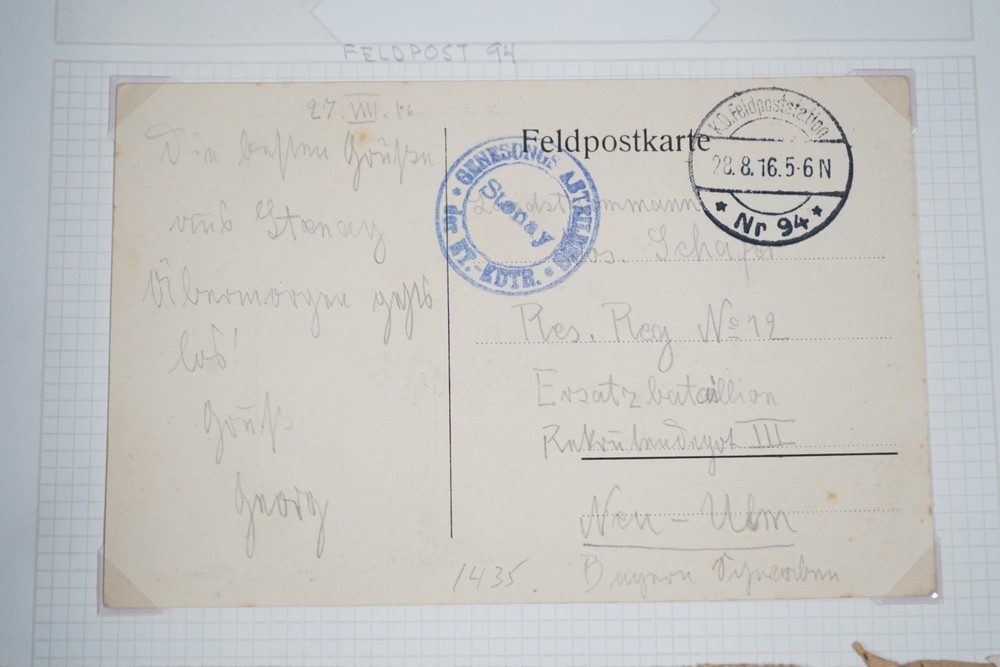 FELDPOST 94
27. VIII. 16
Die besten Grüße
aus Stenay
Übermorgen gehts
los!
Gruß
Georg
Feldpostkarte
K.D. Feldpoststation
28. 8. 16. 5-6 N
* Nr 94 *
GENESUNGS ABTEILUNG
Stenay
der ET.-KDTR.
Landsturmmann
Jos. Schäfer
Res. Reg № 12
Ersatzbataillion
Rekrutendepot III
Neu - Ulm
Bayern Schwaben
1435